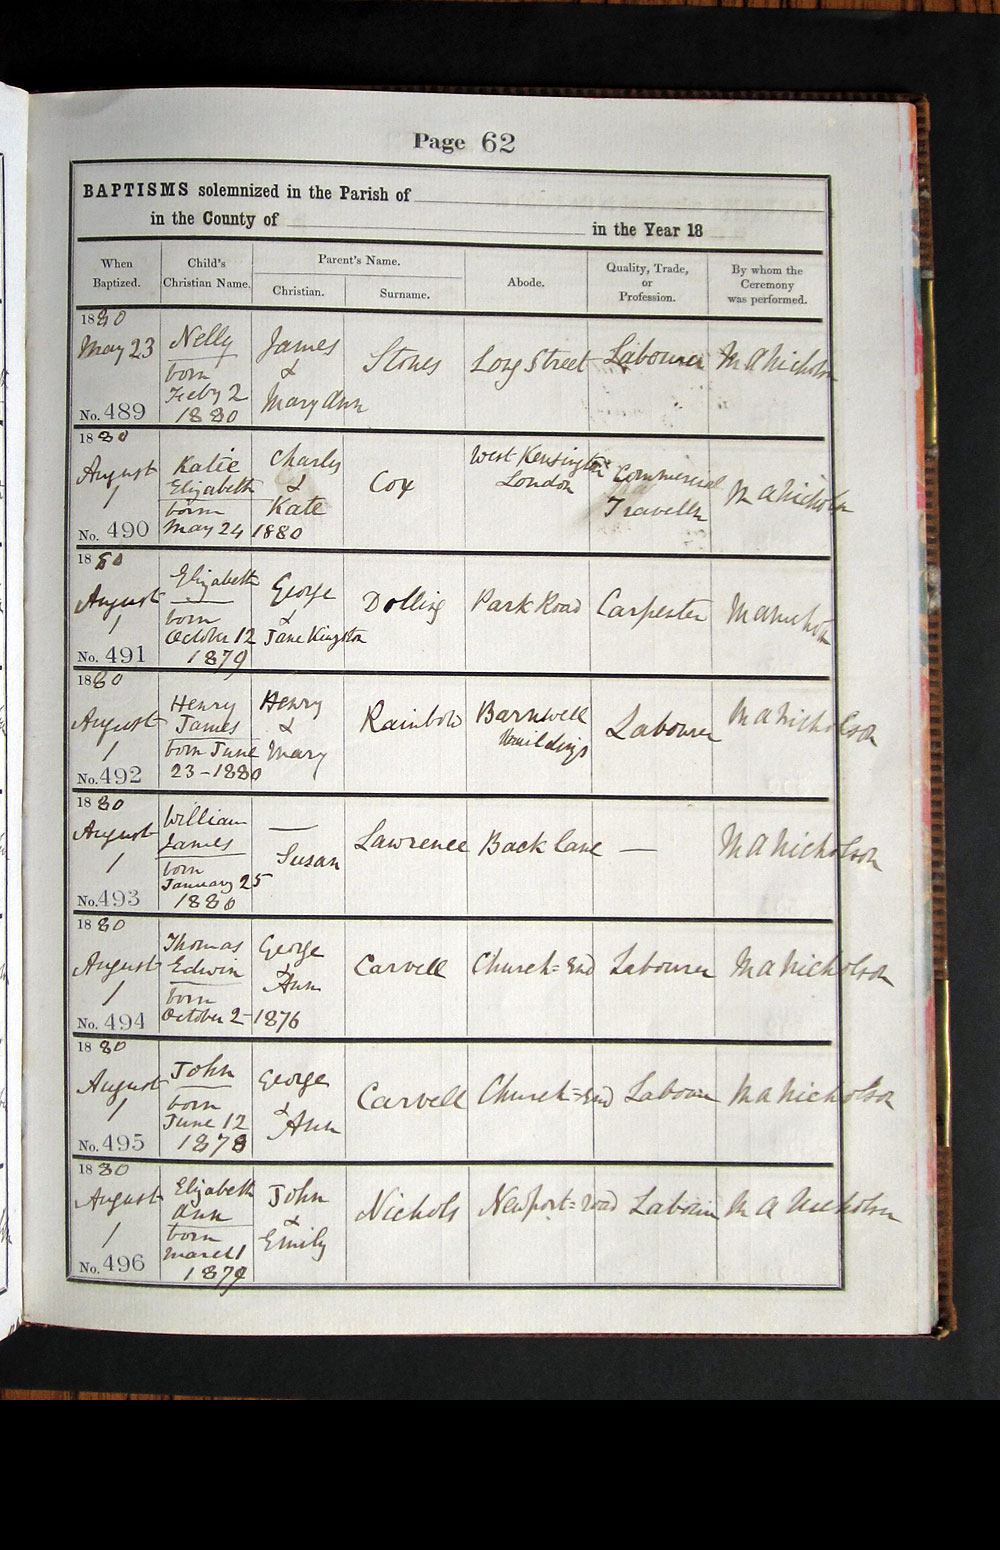 Page 62
BAPTISMS solemnized in the Parish of
in the County of in the Year 18
When Baptized.
Child's Christian Name.
Parent's Name.
Christian.
Surname.
Abode.
Quality, Trade, or Profession.
By whom the Ceremony was performed.
1880
May 23
No. 489
Nelly
born
Feby 2
1880
James
&
Mary Ann
Stones
Long Street
Labourer
M A Nicholson
1880
August
1
No. 490
Katie
Elizabeth
born
May 24 1880
Charles
&
Kate
Cox
West Kensington
London
Commercial
Traveller
M A Nicholson
1880
August
1
No. 491
Elizabeth
born
October 12
1879
George
&
Jane Kingston
Dolling
Park Road
Carpenter
M A Nicholson
1880
August
1
No. 492
Henry
James
born June
23 - 1880
Henry
&
Mary
Rainbow
Barnwell
Buildings
Labourer
M A Nicholson
1880
August
1
No. 493
William
James
born
January 25
1880
—
Susan
Lawrence
Back Lane
—
M A Nicholson
1880
August
1
No. 494
Thomas
Edwin
born
October 2 - 1876
George
&
Ann
Carvell
Church = End
Labourer
M A Nicholson
1880
August
1
No. 495
John
born
June 12
1878
George
&
Ann
Carvell
Church = End
Labourer
M A Nicholson
1880
August
1
No. 496
Elizabeth
Ann
born
March 1
1879
John
&
Emily
Nichols
Newport = road
Labourer
M A Nicholson